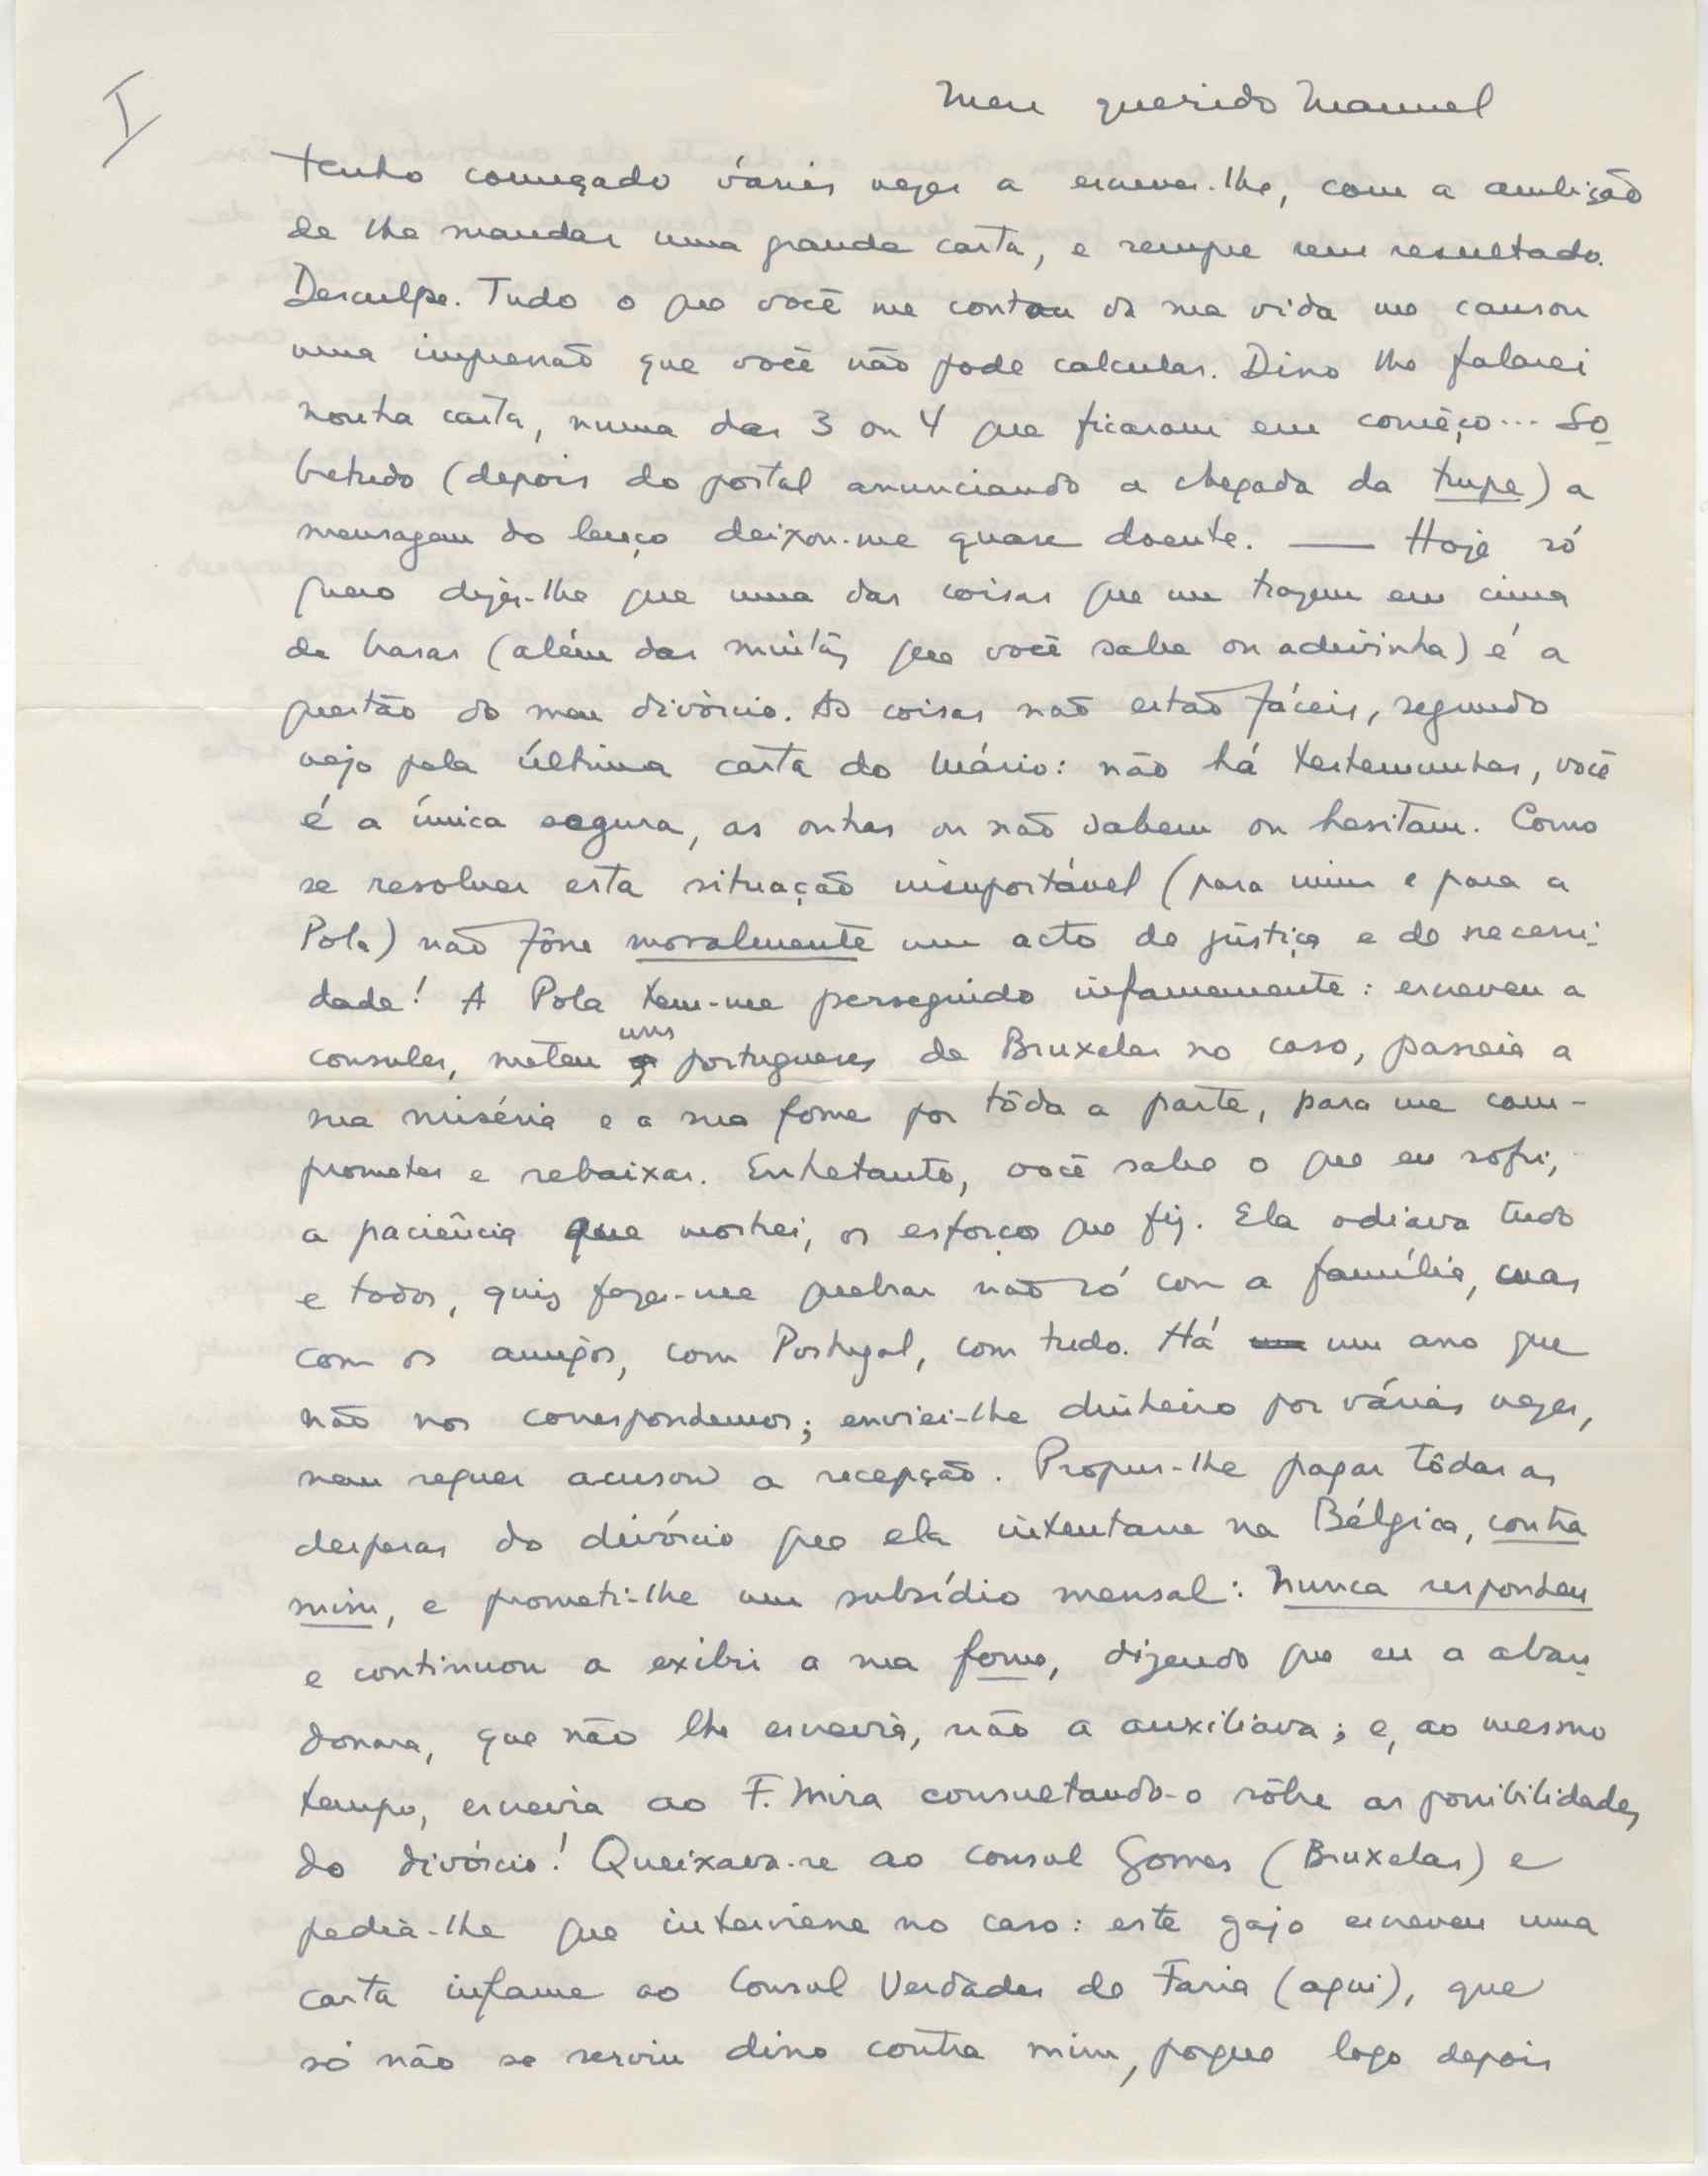 I
Meu querido Manuel
Tenho começado várias vezes a escrever-lhe, com a ambição
de lhe mandar uma grande carta, e sempre sem resultado.
Desculpe. Tudo o que você me contou da sua vida me causou
uma impressão que você não pode calcular. Disso lhe falarei
noutra carta, numa das 3 ou 4 que ficaram em comêço... So
bretudo (depois do postal anunciando a chegada da trupe) a
mensagem do lenço deixou-me quase doente. — Hoje só
quero dizer-lhe que uma das coisas que me trazem em cima
de brasas (além das muitas que você sabe ou adivinha) é a
questão do meu divórcio. As coisas não estão fáceis, segundo
vejo pela última carta do Mário: não há testemunhas, você
é a única segura, as outras ou não sabem ou hesitam. Como
se resolver esta situação insuportável (para mim e para a
Pola) não fôsse moralmente um acto de justiça e de necessi-
dade! A Pola tem-me perseguido infamemente: escreveu a
consules, meteu uns portugueses de Bruxelas no caso, passeia a
sua miséria e a sua fome por tôda a parte, para me com-
prometer e rebaixar. Entretanto, você sabe o que eu sofri,
a paciência que mostrei, os esforços que fiz. Ela odiava tudo
e todos, quis fazer-me quebrar não só com a família, mas
com os amigos, com Portugal, com tudo. Há um ano que
não nos correspondemos; enviei-lhe dinheiro por várias vezes,
nem sequer acusou a recepção. Propus-lhe pagar tôdas as
despesas do divórcio que ela intentasse na Bélgica, contra
mim, e prometi-lhe um subsídio mensal: Nunca respondeu
e continuou a exibir a sua fome, dizendo que eu a aban
donara, que não lhe escrevia, não a auxiliava; e, ao mesmo
tempo, escrevia ao F. Mira consultando-o sôbre as possibilidades
do divórcio! Queixava-se ao consul Gomes (Bruxelas) e
pedia-lhe que interviesse no caso: este gajo escreveu uma
carta infame ao Consul Verdades de Faria (aqui), que
só não se serviu disso contra mim, porque logo depois